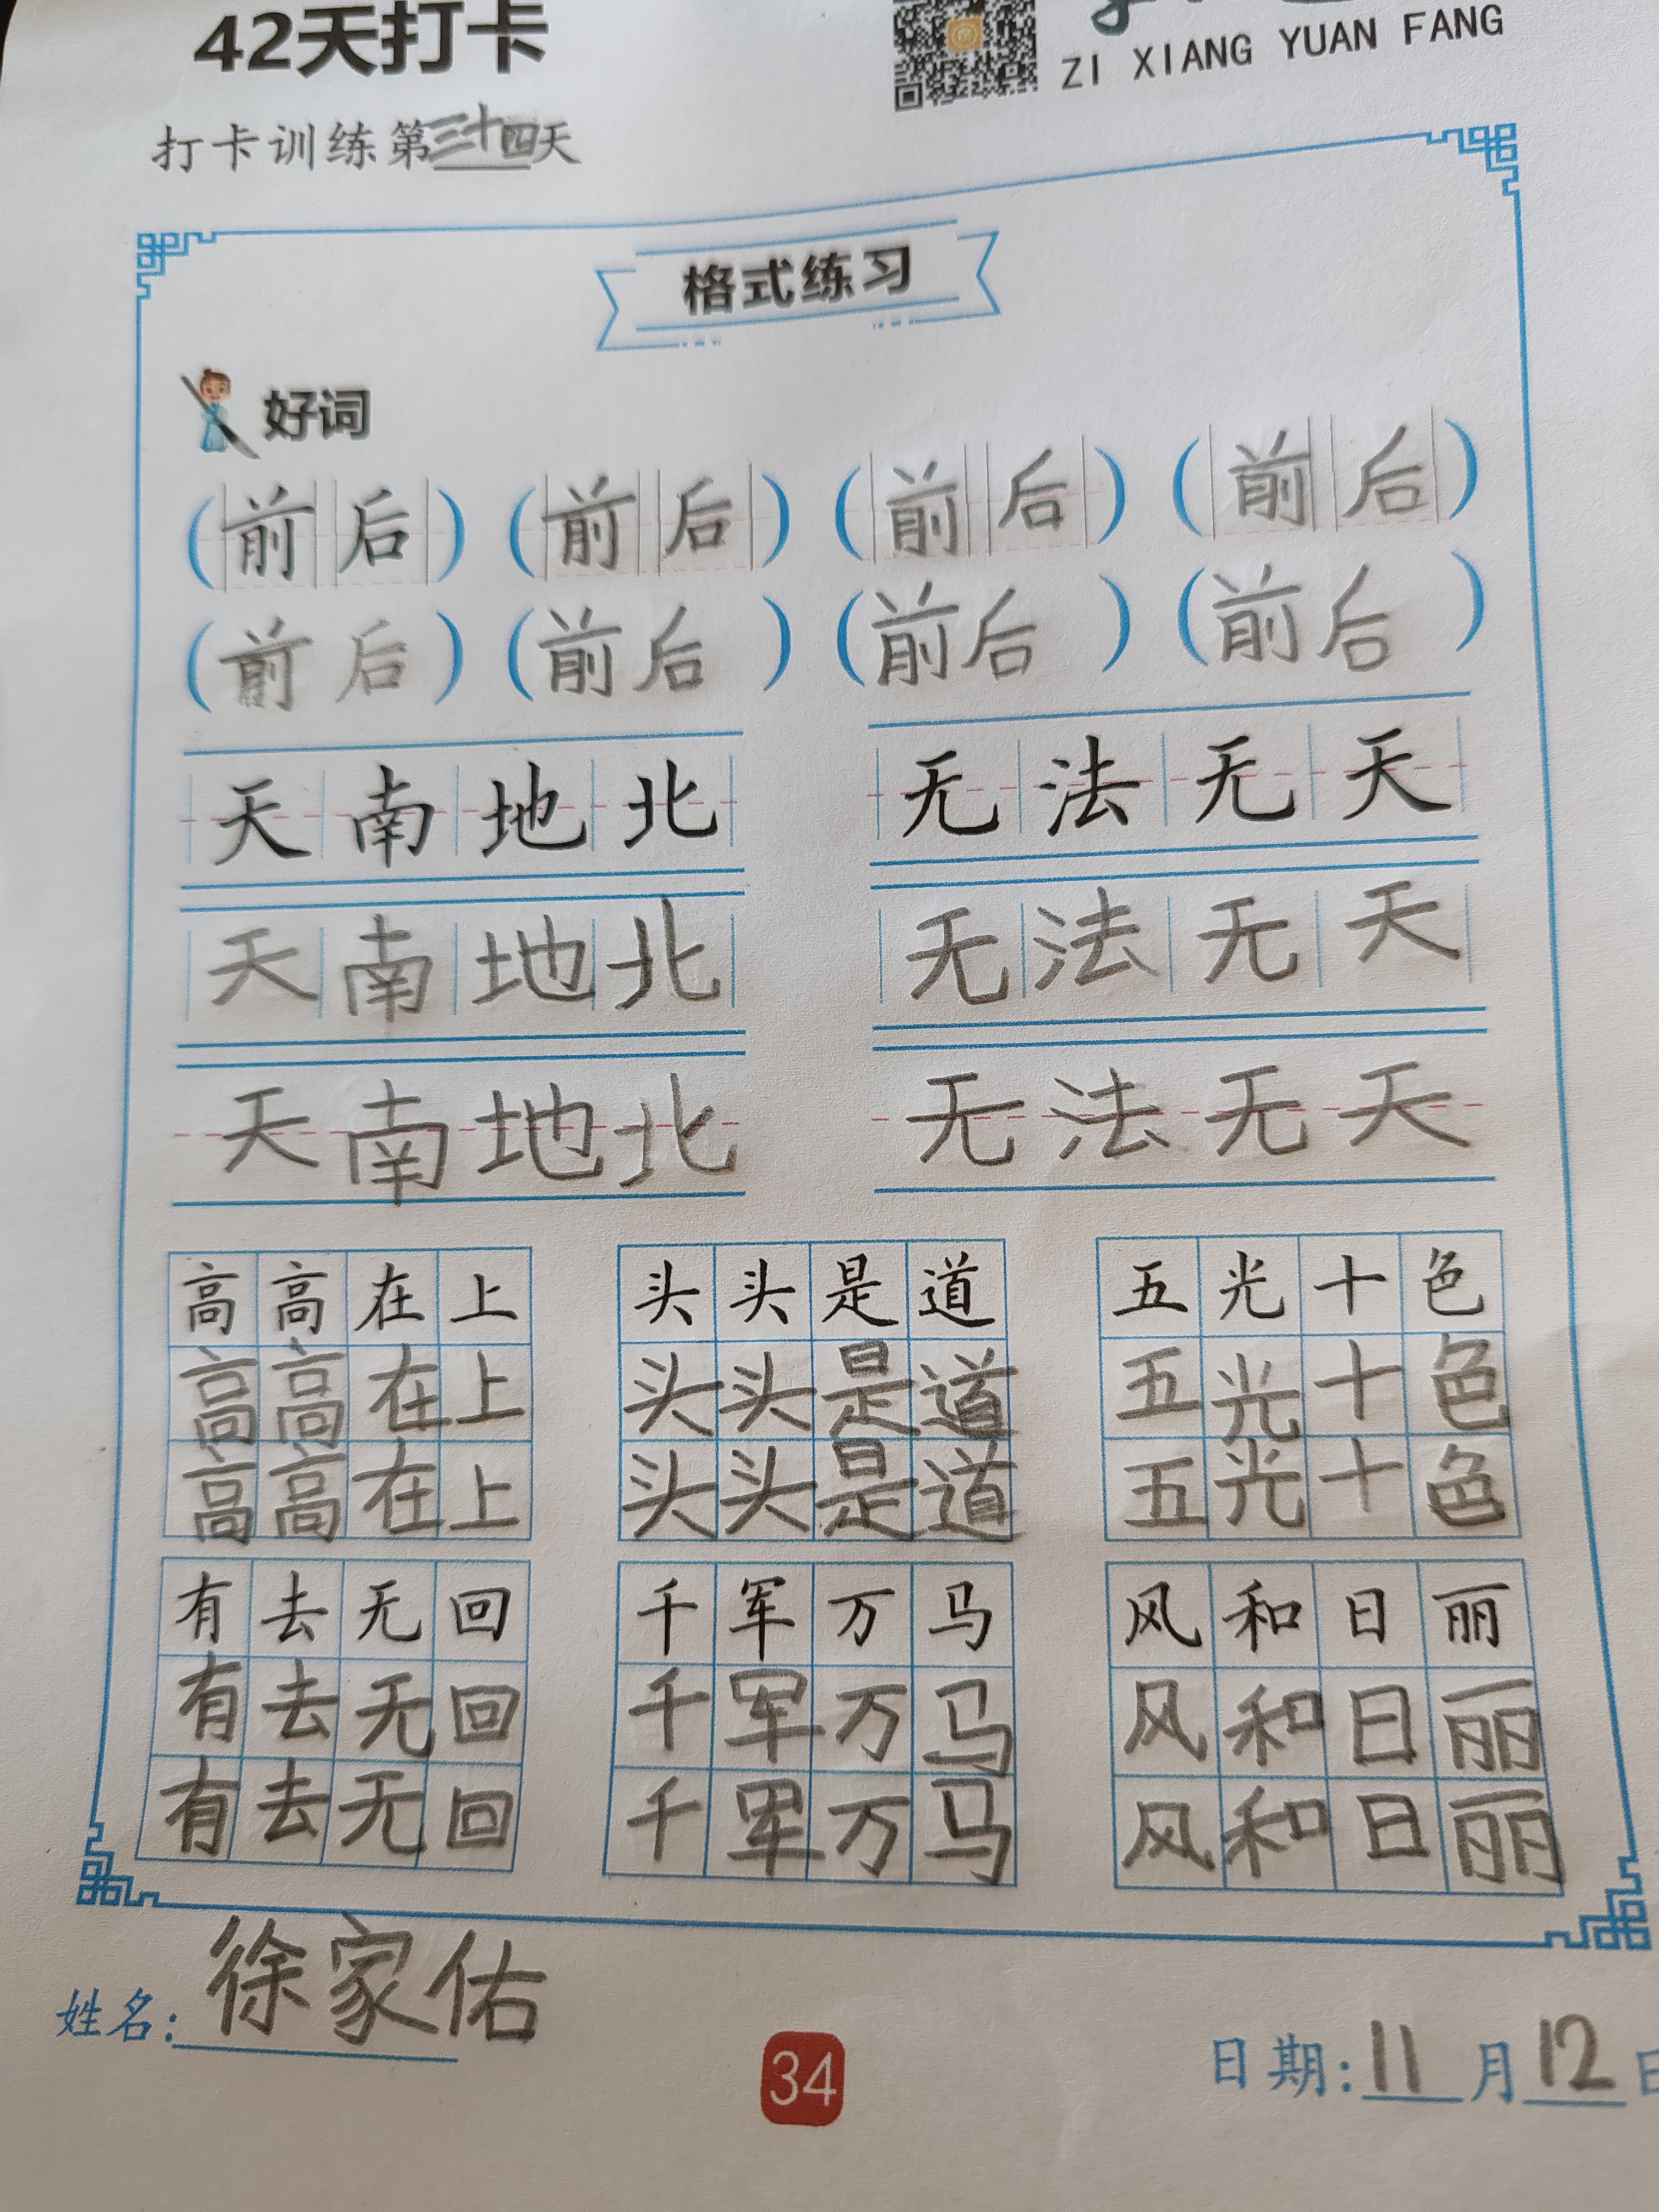 42天打卡
ZI XIANG YUAN FANG
打卡训练第三十四天
格式练习
好词
(前后) (前后) (前后) (前后)
(前后) (前后) (前后) (前后)
天南地北 无法无天
天南地北 无法无天
天南地北 无法无天
高高在上 头头是道 五光十色
高高在上 头头是道 五光十色
高高在上 头头是道 五光十色
有去无回 千军万马 风和日丽
有去无回 千军万马 风和日丽
有去无回 千军万马 风和日丽
姓名:徐家佑
34
日期:11月12日